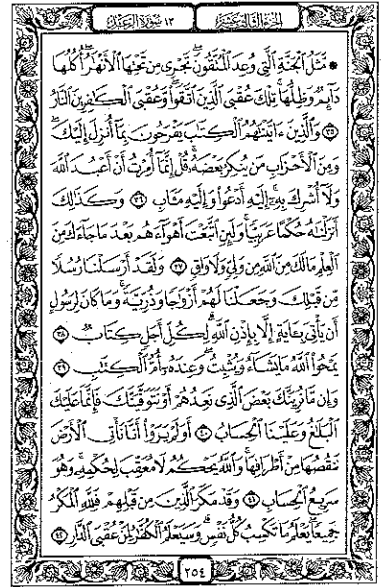 الجزء الثالث عشر ١٣ سورة الرعد
* مَّثَلُ ٱلْجَنَّةِ ٱلَّتِى وُعِدَ ٱلْمُتَّقُونَ تَجْرِى مِن تَحْتِهَا ٱلْأَنْهَٰرُ أُكُلُهَا
دَآئِمٌ وَظِلُّهَا تِلْكَ عُقْبَى ٱلَّذِينَ ٱتَّقَوا۟ وَّعُقْبَى ٱلْكَٰفِرِينَ ٱلنَّارُ
٣٥ وَٱلَّذِينَ ءَاتَيْنَٰهُمُ ٱلْكِتَٰبَ يَفْرَحُونَ بِمَآ أُنزِلَ إِلَيْكَ
وَمِنَ ٱلْأَحْزَابِ مَن يُنكِرُ بَعْضَهُۥ قُلْ إِنَّمَآ أُمِرْتُ أَنْ أَعْبُدَ ٱللَّهَ
وَلَآ أُشْرِكَ بِهِۦٓ إِلَيْهِ أَدْعُوا۟ وَإِلَيْهِ مَـَٔابِ ٣٦ وَكَذَٰلِكَ
أَنزَلْنَٰهُ حُكْمًا عَرَبِيًّا وَلَئِنِ ٱتَّبَعْتَ أَهْوَآءَهُم بَعْدَ مَا جَآءَكَ مِنَ
ٱلْعِلْمِ مَا لَكَ مِنَ ٱللَّهِ مِن وَلِىٍّ وَلَا وَاقٍ ٣٧ وَلَقَدْ أَرْسَلْنَا رُسُلًا
مِّن قَبْلِكَ وَجَعَلْنَا لَهُمْ أَزْوَٰجًا وَذُرِّيَّةً وَمَا كَانَ لِرَسُولٍ
أَن يَأْتِىَ بِـَٔايَةٍ إِلَّا بِإِذْنِ ٱللَّهِ لِكُلِّ أَجَلٍ كِتَابٌ ٣٨
يَمْحُوا۟ ٱللَّهُ مَا يَشَآءُ وَيُثْبِتُ وَعِندَهُۥٓ أُمُّ ٱلْكِتَٰبِ ٣٩
وَإِن مَّا نُرِيَنَّكَ بَعْضَ ٱلَّذِى نَعِدُهُمْ أَوْ نَتَوَفَّيَنَّكَ فَإِنَّمَا عَلَيْكَ
ٱلْبَلَٰغُ وَعَلَيْنَا ٱلْحِسَابُ ٤٠ أَوَلَمْ يَرَوْا۟ أَنَّا نَأْتِى ٱلْأَرْضَ
نَنقُصُهَا مِنْ أَطْرَافِهَا وَٱللَّهُ يَحْكُمُ لَا مُعَقِّبَ لِحُكْمِهِۦ وَهُوَ
سَرِيعُ ٱلْحِسَابِ ٤١ وَقَدْ مَكَرَ ٱلَّذِينَ مِن قَبْلِهِمْ فَلِلَّهِ ٱلْمَكْرُ
جَمِيعًا يَعْلَمُ مَا تَكْسِبُ كُلُّ نَفْسٍ وَسَيَعْلَمُ ٱلْكُفَّٰرُ لِمَنْ عُقْبَى ٱلدَّارِ ٤٢
٢٥٤